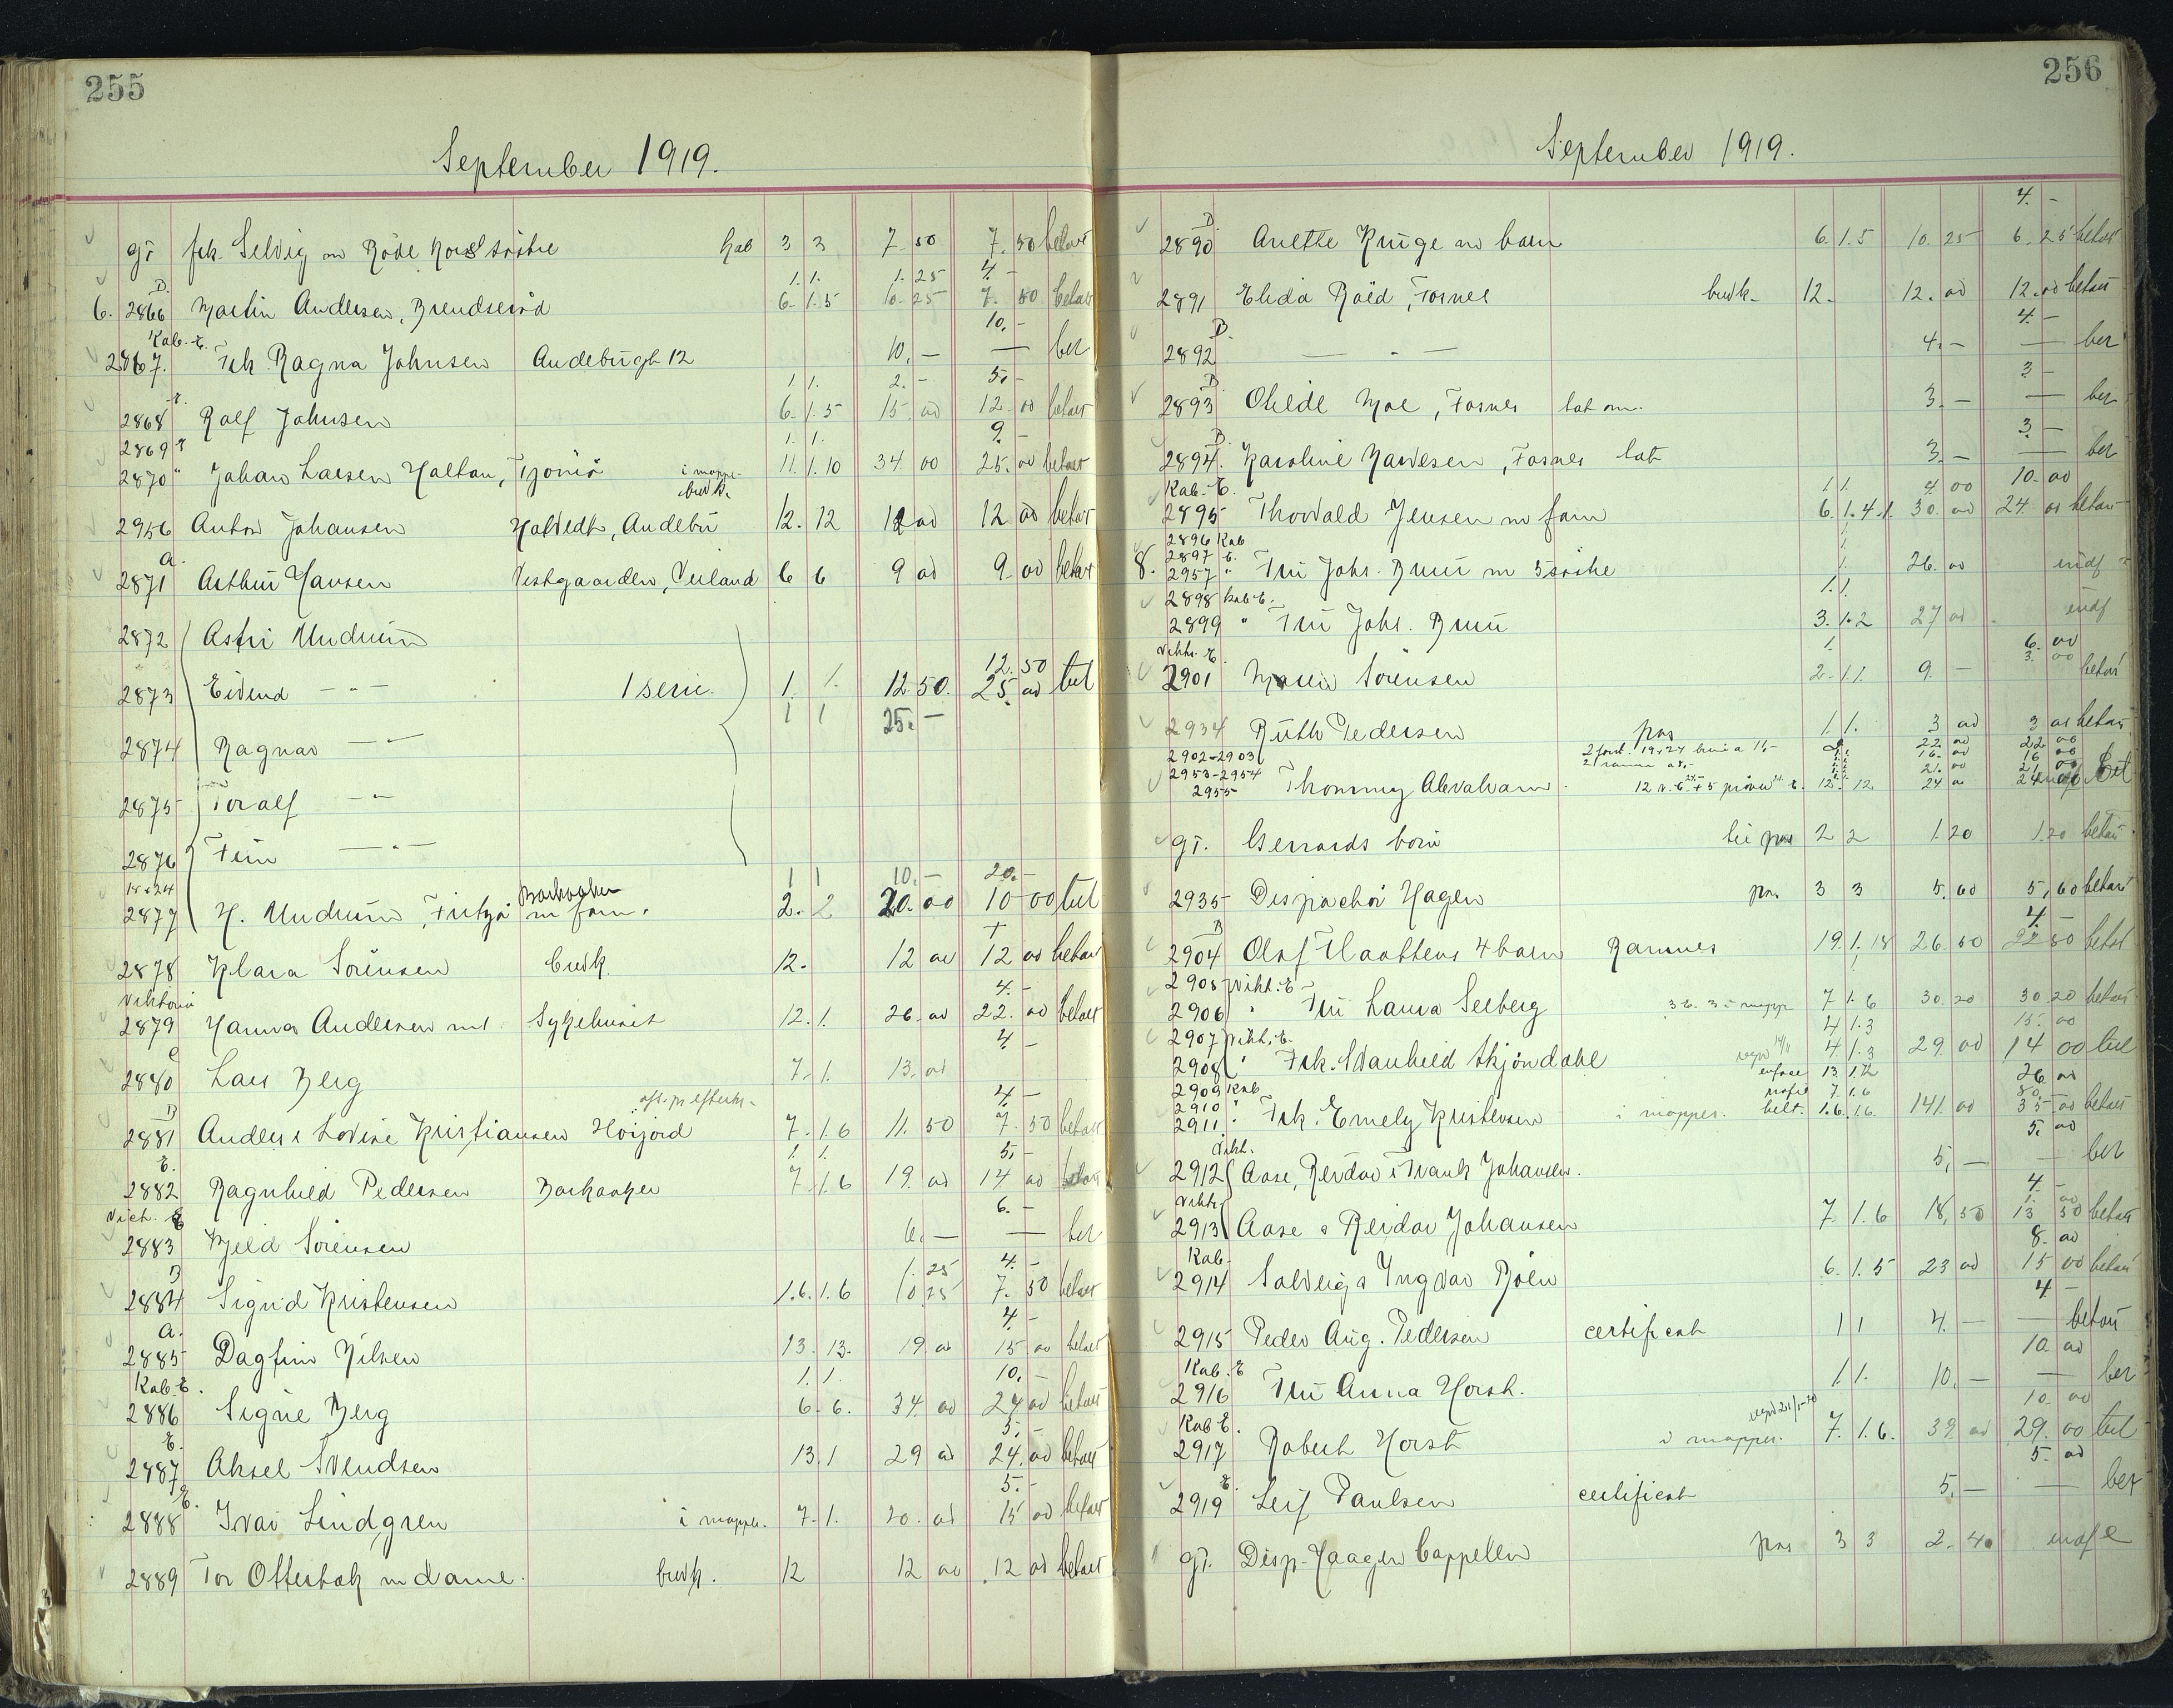 255
September 1919.
gt frk. Selvig m Röde Kors söstre Kab 3 3 7.50 7.50 betalt
1. 1. 1.25 4.-
6. 2866 D. Martin Andersen, Brendseröd 6. 1.5 10.25 7.50 betalt
Kab. E. 10.-
2867. Frk. Ragna Johnsen Andebugt 12 10.- — ber
1. 1. 2.- 5.-
2868 E. Rolf Johnsen 6. 1.5 15 00 12.00 betalt
2869 E 1. 1. 9.-
2870 " Johan Larsen Haltan, Tjomö i mappe. budk. 11. 1.10 34 00 25.00 betalt
2956 Anton Johansen Holvedt, Andebu 12. 12 12 00 12 00 betalt
a.
2871 Arthur Hansen Vestgaarden, Veiland 6 6 9 00 9.00 betalt
2872 Astri Undrum
12.50
2873 Eivind -"- 1 serie. 1. 1. 12.50. 25.00 tul
1 1 25.-
2874 Ragnar -"-
2875 Toralf -"-
2876 Finn -"-
18x24 Barkaaker 1 1 10.- 20.-
2877 H. Undrum, Fritzö m fam. 2. 2 20.00 10 00 tul
2878 Klara Sörensen budk. 12. 12 00 12 00 betalt
Viktoria 4.-
2879 Hanna Andersen m 1 Sykehuset 12. 1. 26.00 22.00 betalt
e 4.-
2880 Lars Berg 7. 1. 13.00
D 4.-
2881 Anders & Lovise Kristiansen Höijord 7. 1.6 11.50 7.50 betalt
E. 1. 1. 5.-
2882 Ragnhild Pedersen Barkaaker 7. 1.6 19.00 14 00 betalt
Vict. E 6.-
2883 Kjeld Sörensen 6.- — ber
D 1.25 4.-
2884 Sigrid Kristensen 1.6. 1.6 10.25 7.50 betalt
a. 4.-
2885 Dagfinn Nilsen 13. 13. 19 00 15 00 betalt
Kab. E. 1. 1. 10.-
2886 Signe Berg 6. 6. 34.00 24 00 betalt
E. 5.-
2887 Aksel Svendsen 13. 1 29 00 24.00 betalt
E. 5.-
2888 Ivar Lindgren i mappe. 7. 1. 20.00 15 00 betalt
2889 Tor Ottersbak m dame. budk. 12 12 00 12 00 betalt
256
September 1919.
D 4.-
2890 Anette Kruge m barn 6. 1.5 10.25 6.25 betalt
2891 Elida Röed, Fosnes budk. 12. 12.00 12.00 betalt
D 4.-
2892 — " — 4.- — ber
D 3.-
2893 Olvide Moe, Fosnes 3.- — ber
D 3.-
2894. Karoline Marvesen, Fosnes 3.- — ber
Kab. E. 1 1. 4 00 10.00
2895 Thorvald Jensen m fam 6. 1. 4.1. 30.00 24.00 betalt
2896 Kab
2897 E.
8. 2957 " Fru Johs. Bruu m 5 söstre 1. 26.00 indf
2898 Kab E. 1. 1.
2899 " Fru Johs. Bruu 3. 1.2 27 00 indf
Vikt. E. 1. 6.00
3.00
2901 Maria Sörensen 2. 1.1. 9.- betalt
2934 Ruth Pedersen pas 1. 1. 3 00 3 00 betalt
2902-2903 22.00 22.00
2953-2954 16.00 16 00
2955 Thommy Abrahams 12. 12 24 00
gt. Gerrards born 2 2 1.20 1.20 betalt
2935 Dispachör Hagen pas 3 3 5.60 5,60 betalt
D 4.-
2904 Olaf Flaattens 4 barn Ramnes 19. 1.18 26.50 22 50 betalt
2905 Vikt. E
2906 " Fru Laura Seeberg 7 1.6 30.20 30 20 betalt
2907 Vikt. E. 4 1.3 15.00
2908 " Frk. Svanhild Skjöndahl 4 1.3 29.00 14 00 tul
2909 Kab enface 13 1.12 26.00
2910 " profil 7. 1.6 80.-
2911 " Frk. Emely Kristensen i mapper. belt. 1.6. 1.6. 141.00 35.00 betalt
Vikt. 5.00
2912 Aase, Reidar & Frank Johansen. 5.- — ber
Vikt. 4.-
2913 Aase & Reidar Johansen 7. 1.6 18,50 13 50 betalt
Kab. 8.00
2914 Solveig & Ingvar Röen 6. 1.5 23 00 15 00 betalt
4.-
2915 Peder Aug. Pedersen certificat 1 1 4.- — betalt
Kab. E 10 00
2916 Fru Anna Horsh. 1 1. 10.- — ber
Kab E. 10.00
2917 Robert Horst i mapper. 7. 1.6. 39.00 29.00 tul
E. 5.00
2919 Leif Paulsen certificat 5.- — ber
gt. Disp. Haagen Cappelen pas 3 3 2.40 indf